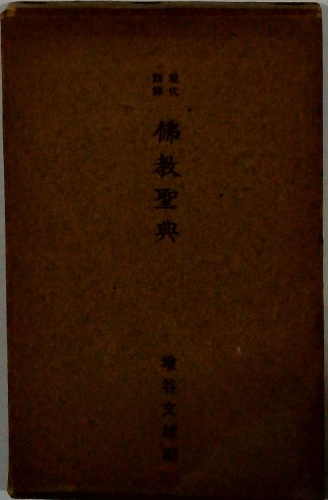 現代
語譯
佛教聖典
增谷文雄編